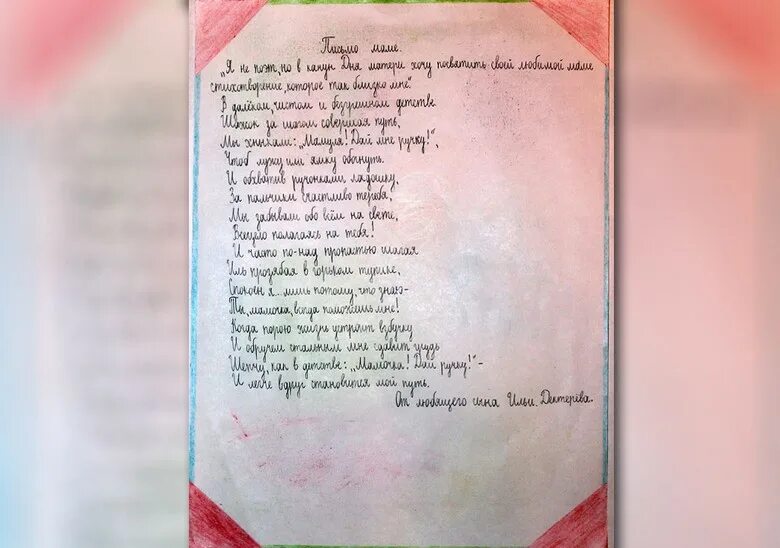 Письмо маме.
„Я не поэт, но в канун Дня матери хочу посвятить своей любимой маме
стихотворение, которое так близко мне".
В далёком, чистом и безгрешном детстве
Шажок за шагом совершая путь,
Мы хныкали: „Мамуля! Дай мне ручку!",
Чтоб лужу или ямку обогнуть.
И обхватив ручонками ладошку,
За пальчики счастливо теребя,
Мы забывали обо всём на свете,
Всецело полагаясь на тебя!
И часто по-над пропастью шагая
Иль прозябая в горьком тупике,
Спокоен я... лишь потому, что знаю-
Ты, мамочка, всегда поможешь мне!
Когда порою жизнь устроит взбучку
И обручем стальным мне сдавит грудь
Шепчу, как в детстве: „Мамочка! Дай ручку!"-
И легче вдруг становится мой путь.
От любящего сына Ильи Дектерёва.